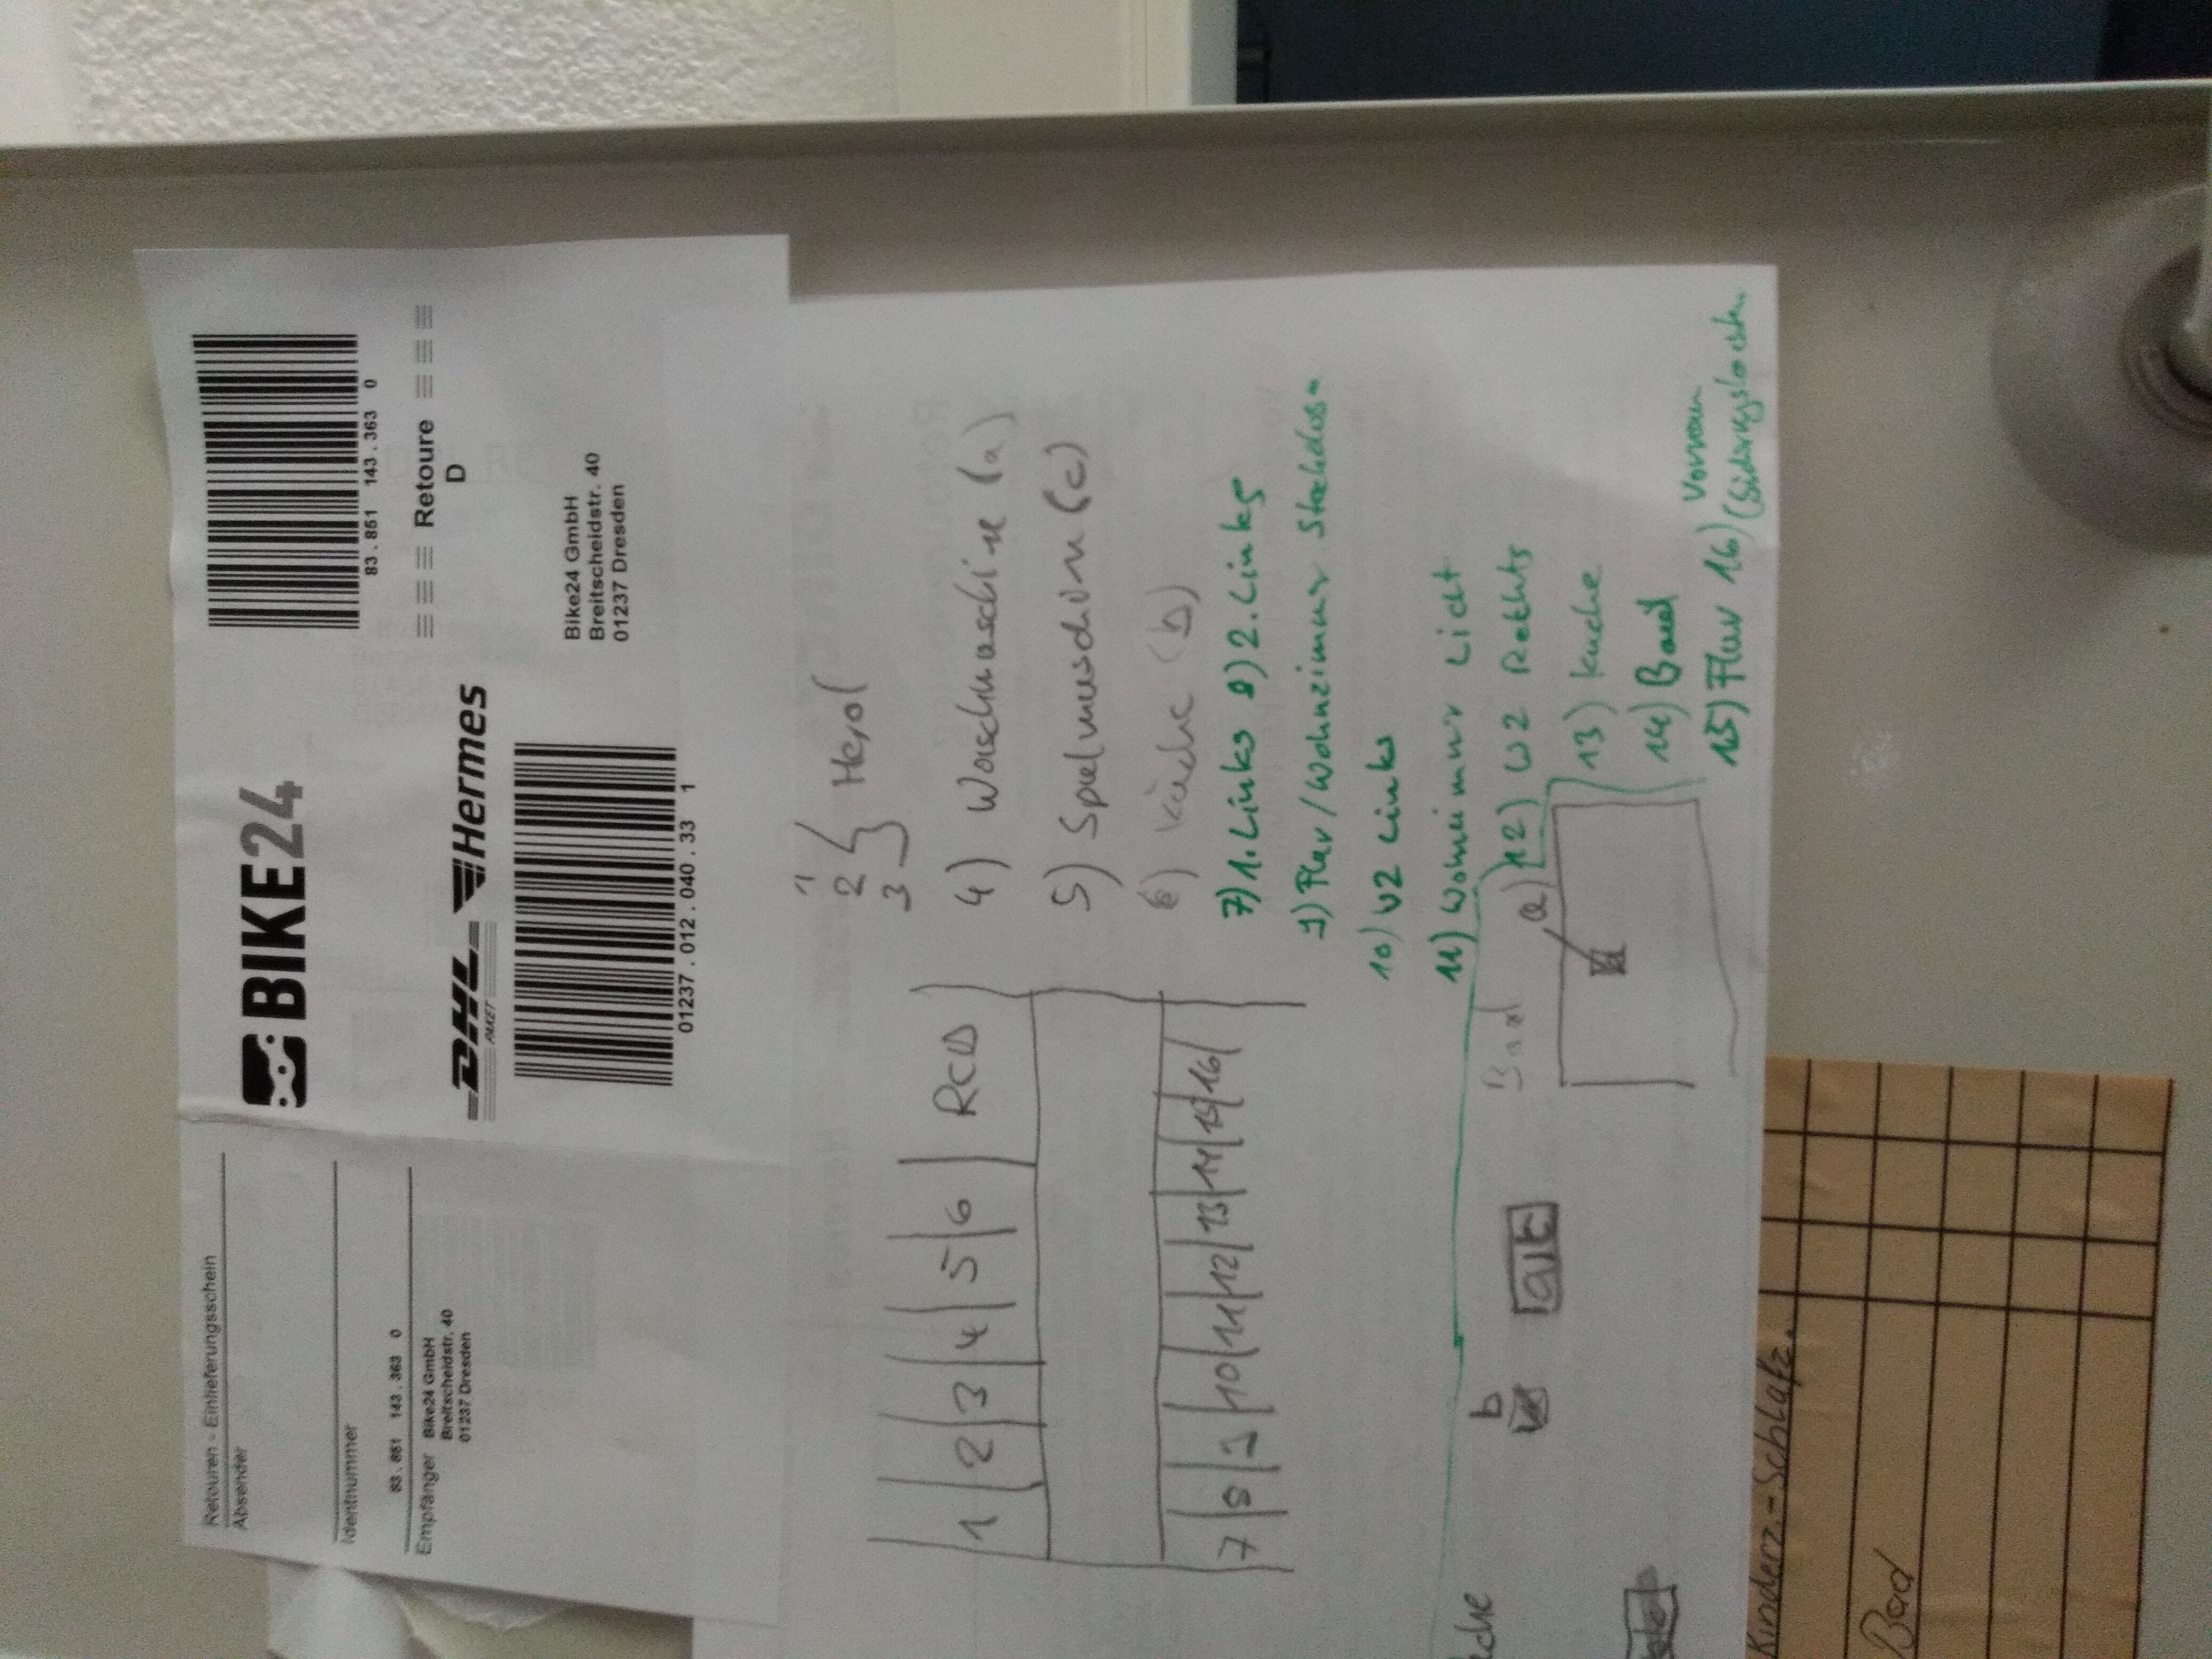 Retouren - Einlieferungsschein
Absender
Identnummer
83.851 143.363 0
Empfänger Bike24 GmbH
Breitscheidstr. 40
01237 Dresden
BIKE24
DHL
PAKET
Hermes
01237.012.040.33 1
83.851 143.363 0
Retoure
D
Bike24 GmbH
Breitscheidstr. 40
01237 Dresden
1 2 3 4 5 6 RCD
7 8 9 10 11 12 13 14 15 16
1
2 Herd
3
4) Waschmaschine (a)
5) Spülmaschine (c)
6) Küche (b)
7) 1. Links 8) 2. Links
9) Flur/Wohnzimmer Steckdose
10) V2 Links
11) Wohnzimmer Licht
12) V2 Rechts
13) Küche
14) Bad
15) Flur 16) Vorraum
(Sicherungskasten
che
b
alt
Bad
a)
Kinderz.-Schlafz.
Bad